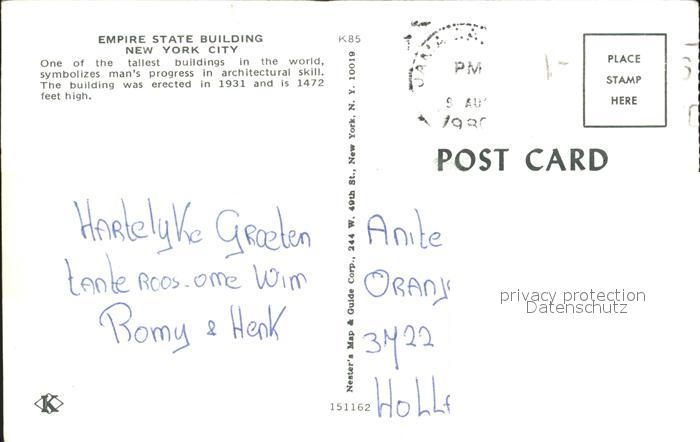 EMPIRE STATE BUILDING
NEW YORK CITY
One of the tallest buildings in the world,
symbolizes man's progress in architectural skill.
The building was erected in 1931 and is 1472
feet high.
K85
PM
1980
PLACE
STAMP
HERE
POST CARD
Hartelyke Groeten
tante Roos - ome Wim
Romy & Henk
Nester's Map & Guide Corp., 244 W. 49th St., New York, N. Y. 10019
Anite
Oranj
3722
Holl
privacy protection
Datenschutz
K
151162